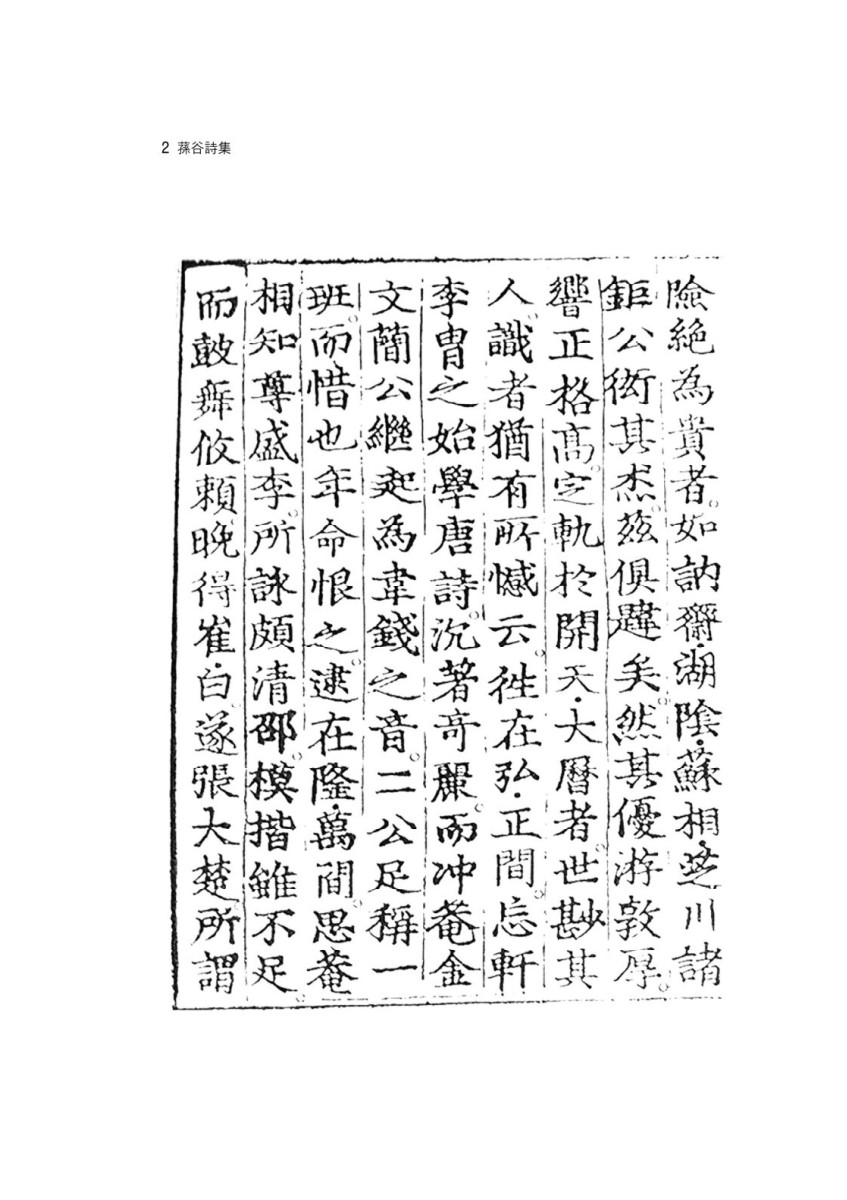 2 蓀谷詩集
險絶為貴者。如訥齋·湖陰·蘇相·芝川諸
鉅公衒其杰。茲俱韙矣。然其優游敦厚。
響正格高。定軌於開天·大曆者。世尠其
人。識者猶有所憾云。徃在弘·正間。忘軒
李胄之始學唐詩。沉著奇麗。而冲菴金
文簡公繼起為韋錢之音。二公足稱一
班。而惜也年命恨之。逮在隆·萬間。思菴
相知尊盛李。所詠頗清邵。模揩雖不足。
而鼓舞攸賴。晩得崔·白。遂張大楚所謂